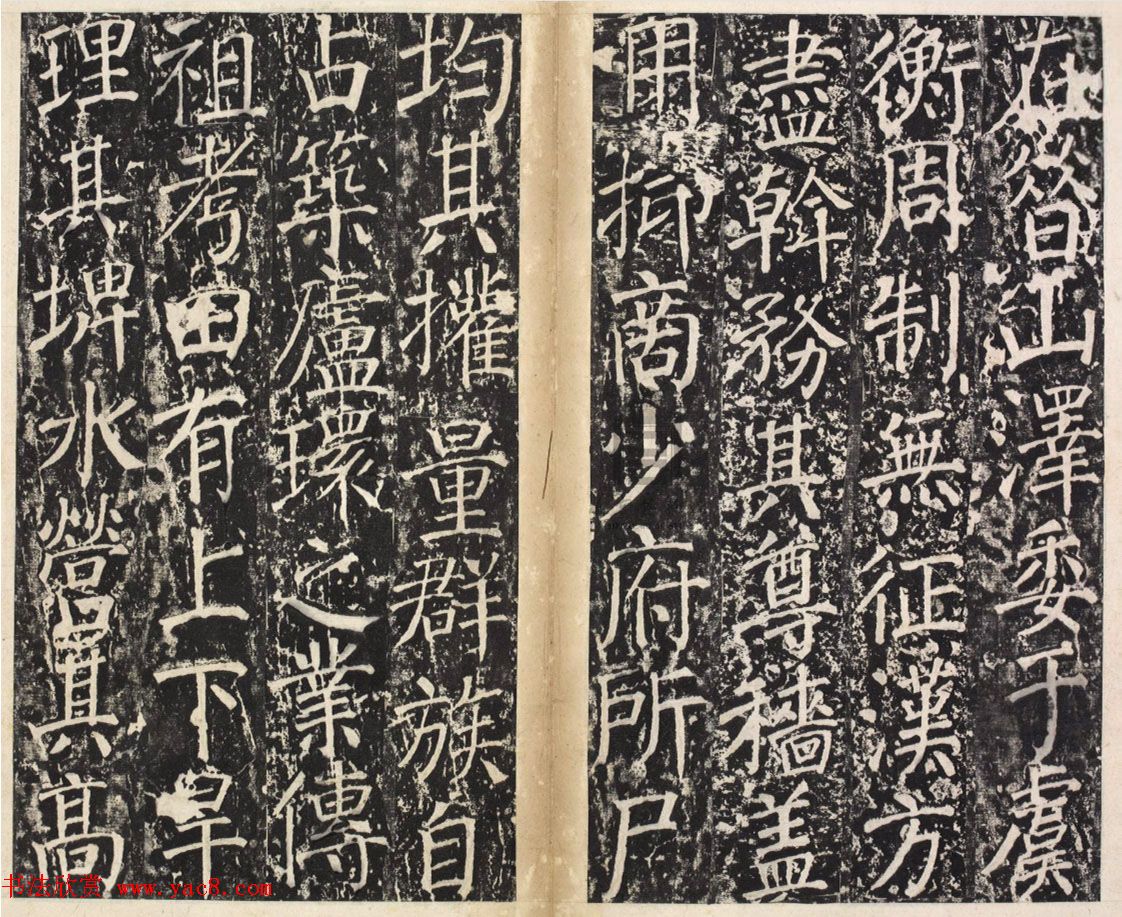 在㫺山澤委于虞
衡周制無征漢方
盡斡務其尊穡盖
用抑商少府所尸
均其㩲量群族自
占築廬環之業傳
祖考田有上下旱
理其埤水營其高
书法欣赏 www.yac8.com